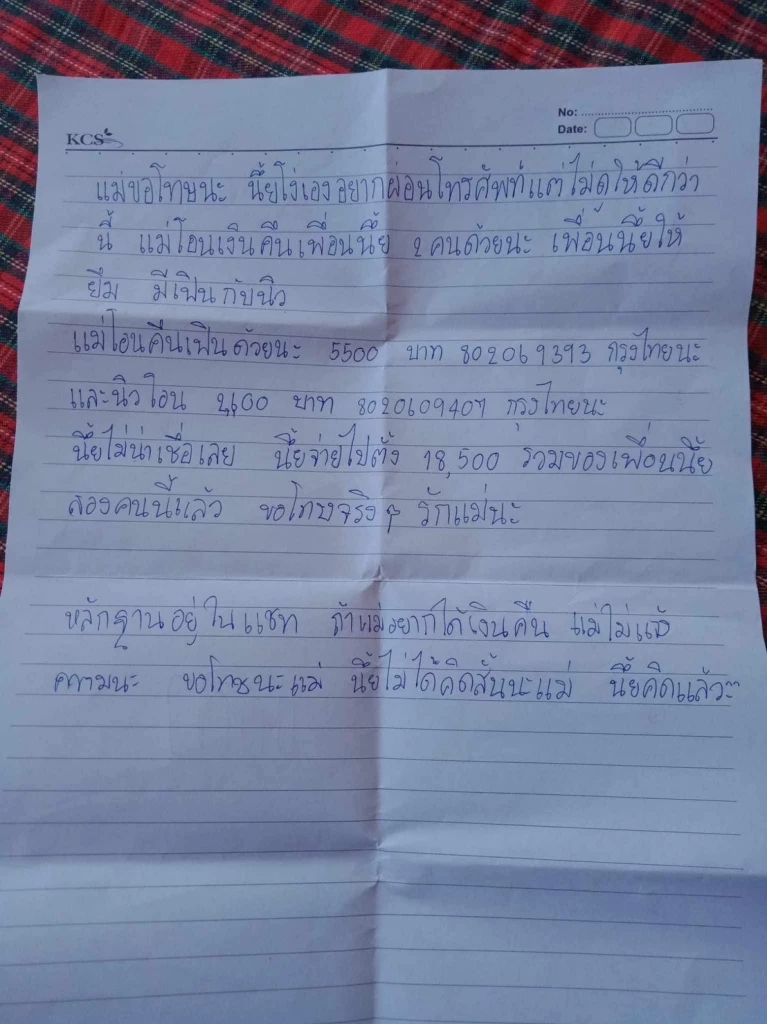 No:
Date:
KCS
แม่ขอโทษนะ นี้ยโง่เองอยากผ่อนโทรศัพท์แต่ไม่ดูให้ดีกว่า
นี้ แม่โอนเงินคืนเพื่อนนี้ย 2 คนด้วยนะ เพื่อนนี้ยให้
ยืม มีเฟินกับนิว
แม่โอนคืนเฟินด้วยนะ 5500 บาท 802069393 กรุงไทยนะ
และนิวโอน บาท 8020609407 กรุงไทยนะ
นี้ยไม่น่าเชื่อเลย นี้ยจ่ายไปตั้ง 18,500 รวมของเพื่อนนี้ย
สองคนนี้แล้ว ขอโทษจริงๆ รักแม่นะ
หลักฐานอยู่ในแชท ถ้าแม่อยากได้เงินคืน แม่ไปแจ้
ความนะ ขอโทษนะแม่ นี้ยไม่ได้คิดสั้นนะแม่ นี้ยคิดแล้ว